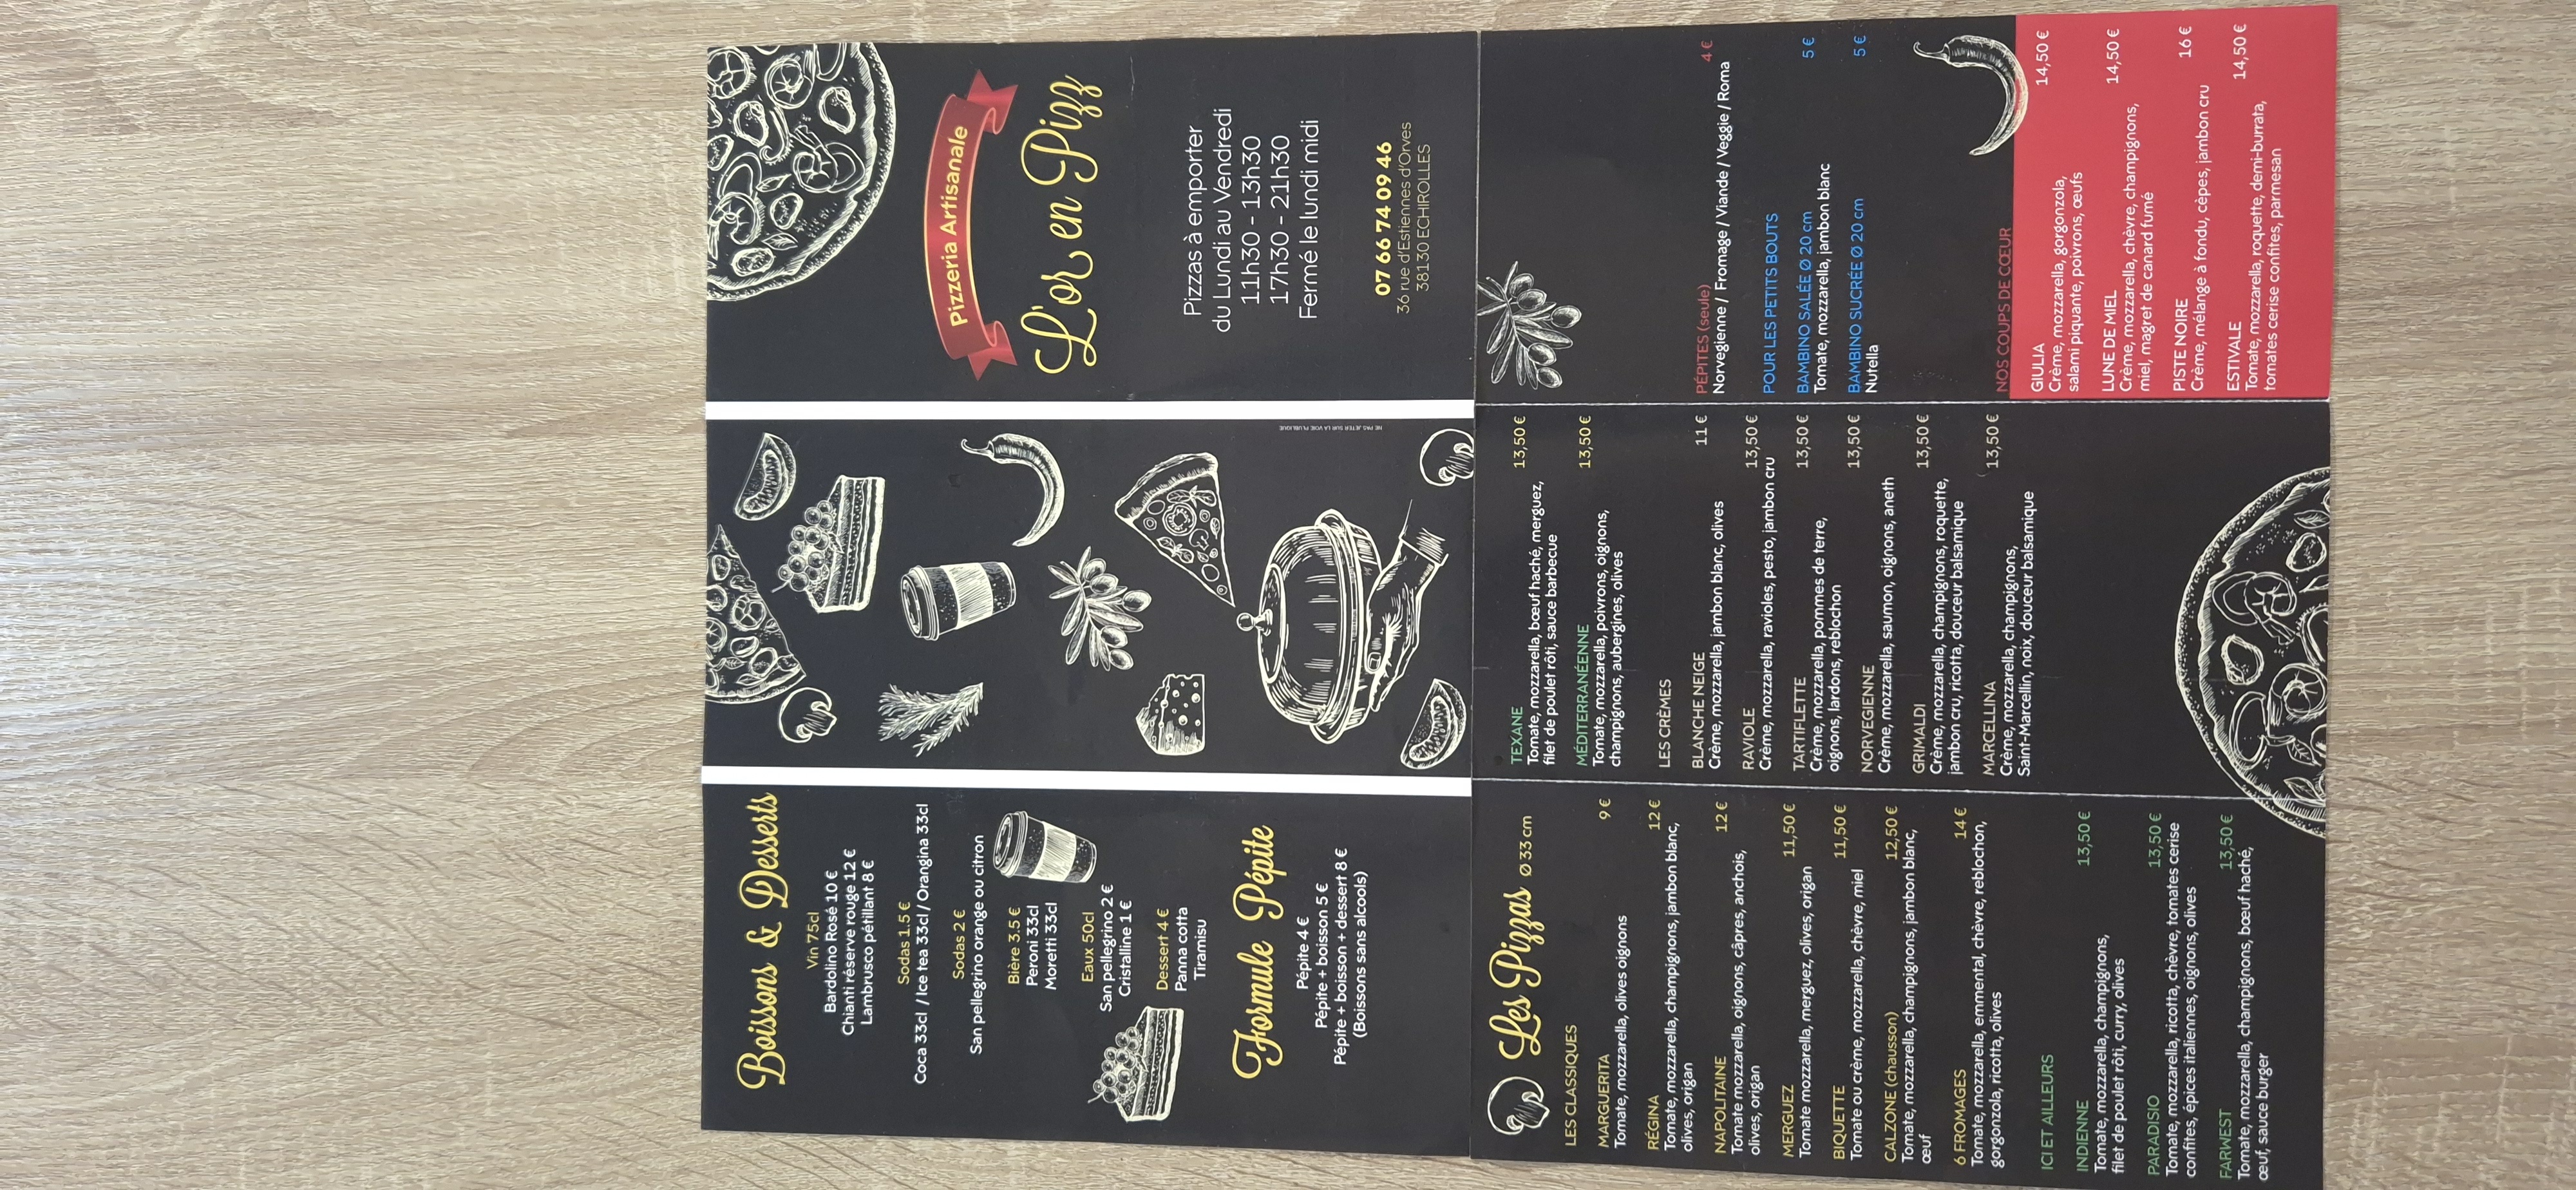 Boissons & Desserts
Vin 75cl
Bardolino Rosé 10 €
Chianti réserve rouge 12 €
Lambrusco pétillant 8 €
Sodas 1.5 €
Coca 33cl / Ice tea 33cl / Orangina 33cl
Sodas 2 €
San pellegrino orange ou citron
Bière 3.5 €
Peroni 33cl
Moretti 33cl
Eaux 50cl
San pellegrino 2 €
Cristalline 1 €
Dessert 4 €
Panna cotta
Tiramisu
Formule Pépite
Pépite 4 €
Pépite + boisson 5 €
Pépite + boisson + dessert 8 €
(Boissons sans alcools)
NE PAS JETER SUR LA VOIE PUBLIQUE
Pizzeria Artisanale
L'or en Pizz
Pizzas à emporter
du Lundi au Vendredi
11h30 - 13h30
17h30 - 21h30
Fermé le lundi midi
07 66 74 09 46
36 rue d'Estiennes d'Orves
38130 ECHIROLLES
Les Pizzas Ø 33 cm
LES CLASSIQUES
MARGUERITA 9 €
Tomate, mozzarella, olives oignons
RÉGINA 12 €
Tomate, mozzarella, champignons, jambon blanc,
olives, origan
NAPOLITAINE 12 €
Tomate mozzarella, oignons, câpres, anchois,
olives, origan
MERGUEZ 11,50 €
Tomate mozzarella, merguez, olives, origan
BIQUETTE 11,50 €
Tomate ou crème, mozzarella, chèvre, miel
CALZONE (chausson) 12,50 €
Tomate, mozzarella, champignons, jambon blanc,
œuf
6 FROMAGES 14 €
Tomate, mozzarella, emmental, chèvre, reblochon,
gorgonzola, ricotta, olives
ICI ET AILLEURS
INDIENNE 13,50 €
Tomate, mozzarella, champignons,
filet de poulet rôti, curry, olives
PARADISIO 13,50 €
Tomate, mozzarella, ricotta, chèvre, tomates cerise
confites, épices italiennes, oignons, olives
FARWEST 13,50 €
Tomate, mozzarella, champignons, bœuf haché,
œuf, sauce burger
TEXANE 13,50 €
Tomate, mozzarella, bœuf haché, merguez,
filet de poulet rôti, sauce barbecue
MÉDITERRANÉENNE 13,50 €
Tomate, mozzarella, poivrons, oignons,
champignons, aubergines, olives
LES CRÈMES
BLANCHE NEIGE 11 €
Crème, mozzarella, jambon blanc, olives
RAVIOLE 13,50 €
Crème, mozzarella, ravioles, pesto, jambon cru
TARTIFLETTE 13,50 €
Crème, mozzarella, pommes de terre,
oignons, lardons, reblochon
NORVEGIENNE 13,50 €
Crème, mozzarella, saumon, oignons, aneth
GRIMALDI 13,50 €
Crème, mozzarella, champignons, roquette,
jambon cru, ricotta, douceur balsamique
MARCELLINA 13,50 €
Crème, mozzarella, champignons,
Saint-Marcellin, noix, douceur balsamique
PÉPITES (seule) 4 €
Norvegienne / Fromage / Viande / Veggie / Roma
POUR LES PETITS BOUTS
BAMBINO SALÉE Ø 20 cm 5 €
Tomate, mozzarella, jambon blanc
BAMBINO SUCRÉE Ø 20 cm 5 €
Nutella
NOS COUPS DE CŒUR
GIULIA 14,50 €
Crème, mozzarella, gorgonzola,
salami piquante, poivrons, œufs
LUNE DE MIEL 14,50 €
Crème, mozzarella, chèvre, champignons,
miel, magret de canard fumé
PISTE NOIRE 16 €
Crème, mélange à fondu, cèpes, jambon cru
ESTIVALE 14,50 €
Tomate, mozzarella, roquette, demi-burrata,
tomates cerise confites, parmesan